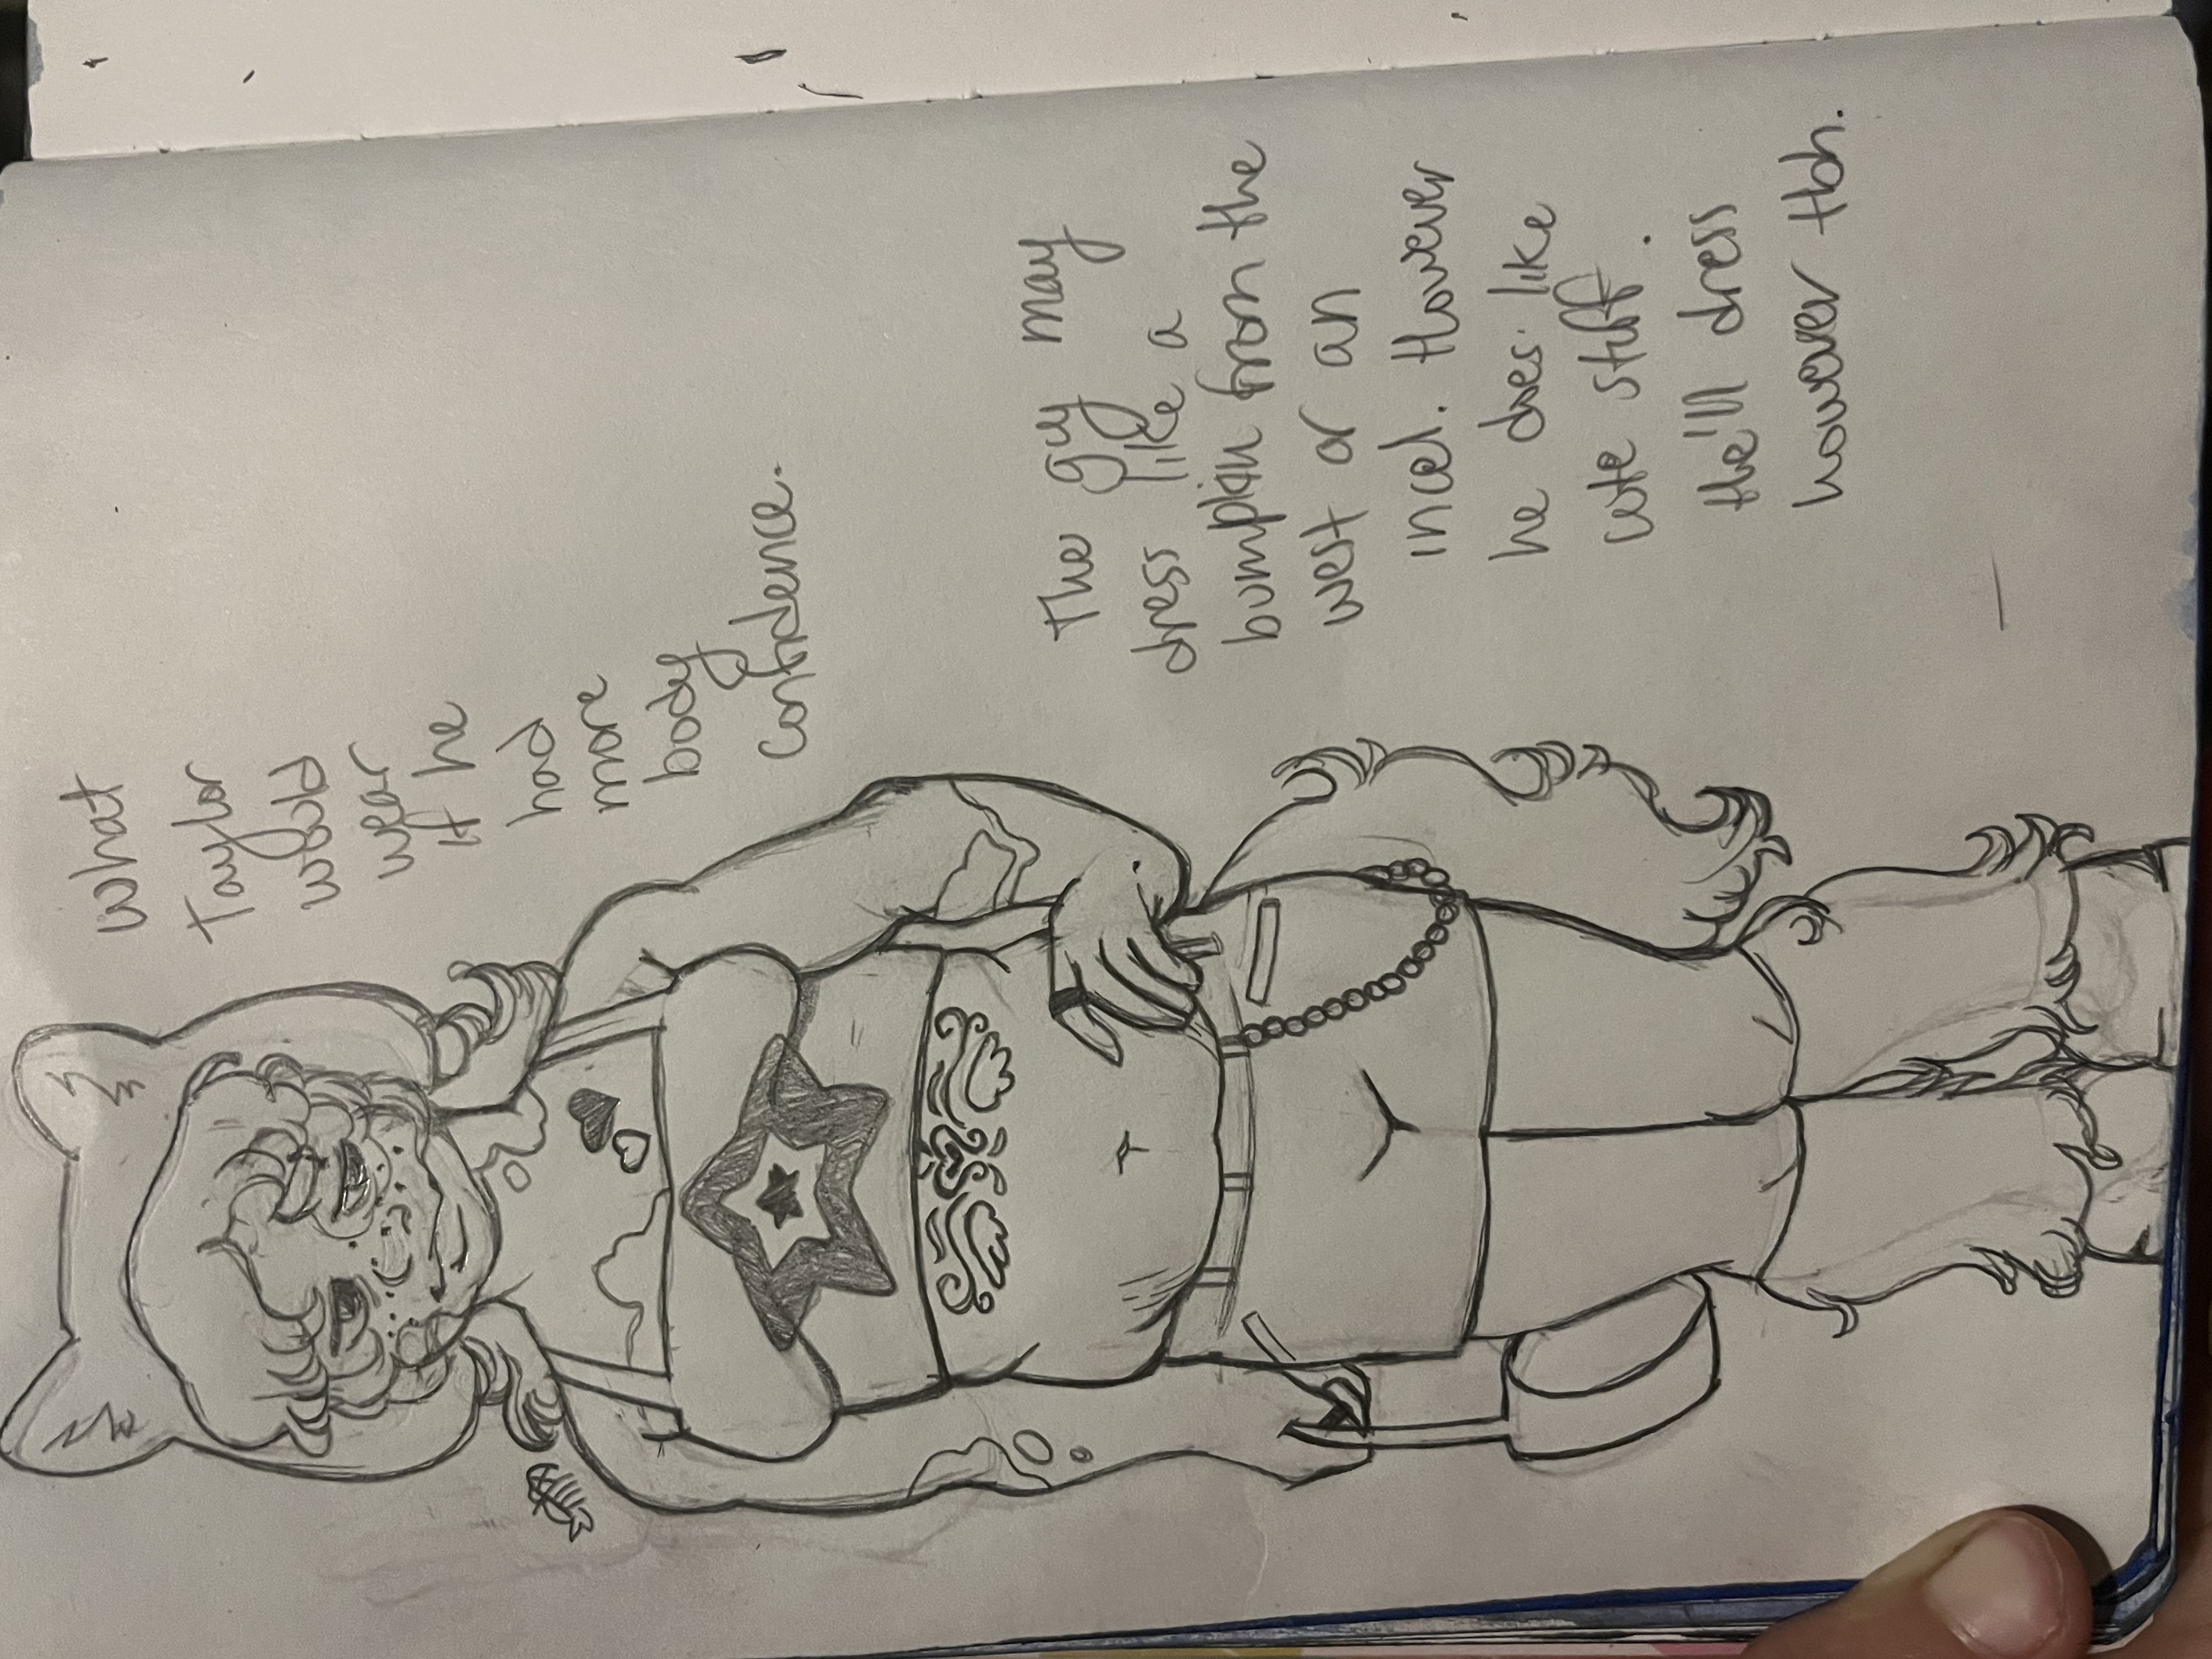 what
Taylor
would
wear
if he
had
more
body
confidence.
The guy may
dress like a
bumpkin from the
west or an
incel. However
he does like
cute stuff.
He'll dress
however tbh.